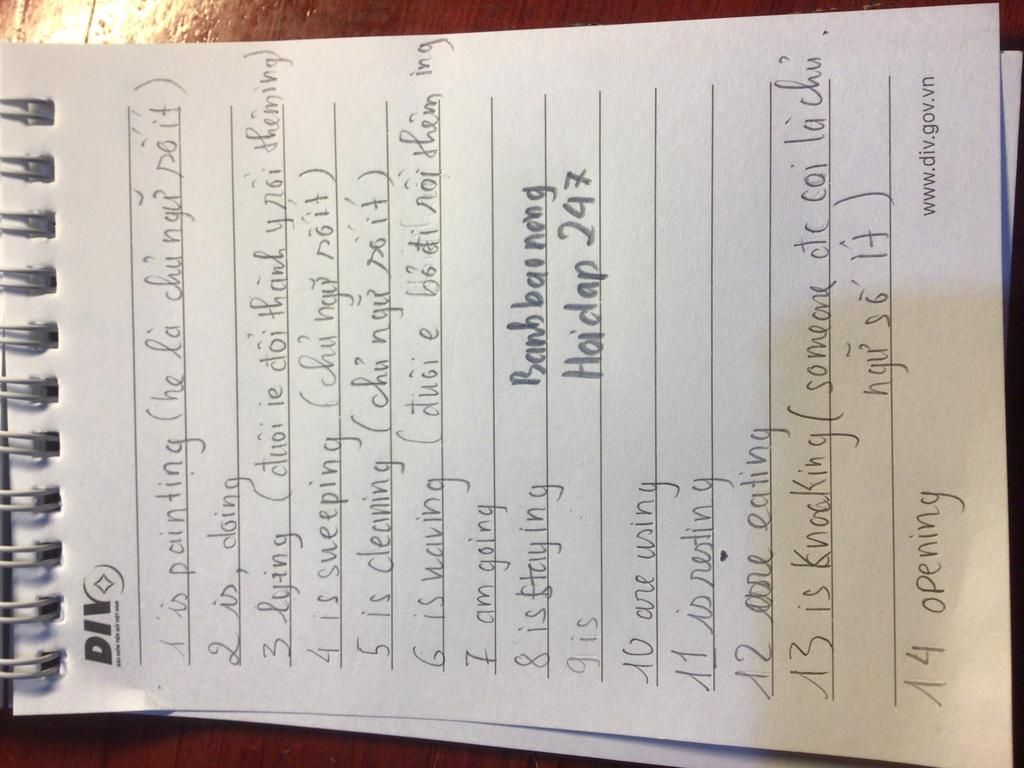 DIV
1 is painting (he là chủ ngữ số ít)
2 is, doing
3 lying (đuôi ie đổi thành y rồi thêm ing)
4 is sweeping (chủ ngữ số ít)
5 is cleaning (chủ ngữ số ít)
6 is having (đuôi e bỏ đi rồi thêm ing
7 am going
8 is staying Banhbaonong
9 is Hoidap 247
10 are using
11 is resting
12 are eating
13 is knocking (someone đc coi là chủ
ngữ số ít)
14 opening
www.div.gov.vn